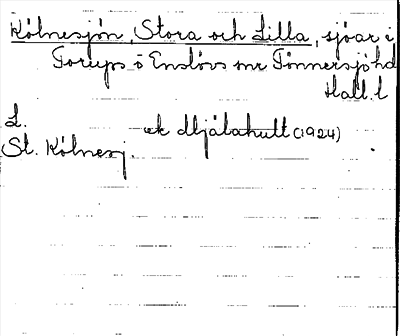 Kölnesjön, Stora och Lilla, sjöar i
Torups o Enslövs snr Tönnersjö hd
Hall. l
L.
St. Kölnesj. ek Mjälahult (1924)